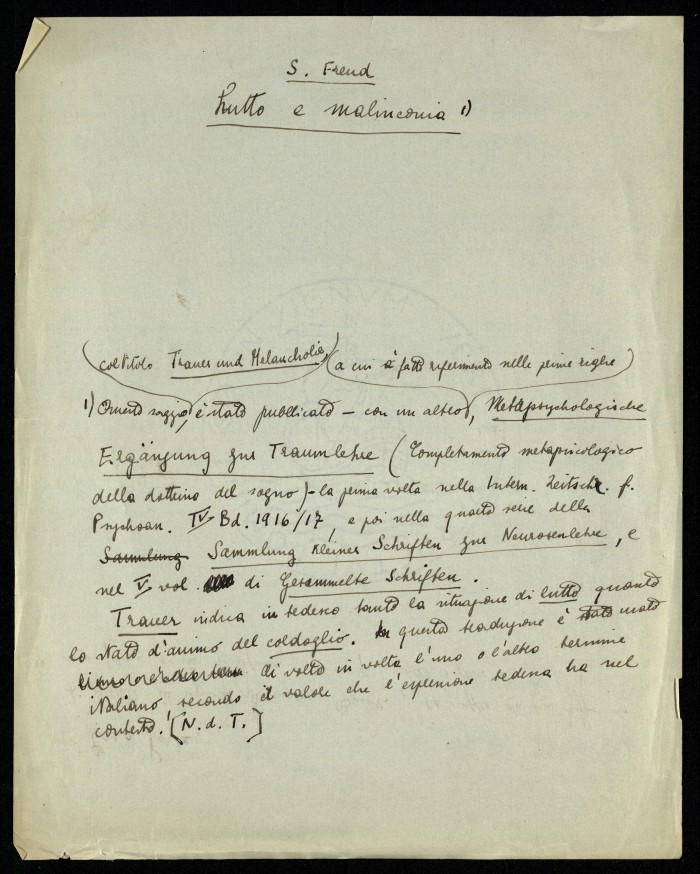 S. Freud
Lutto e malinconia 1)
col titolo Trauer und Melancholie, a cui è fatto riferimento nelle prime righe
1) Questo saggio, è stato pubblicato – con un altro, Metapsychologische
Ergängung zur Traumlehre (Completamento metapsicologico
della dottrina del sogno) – la prima volta nella Intern. Zeitschr. f.
Psychoan. IV Bd. 1916/17, e poi nella quarta serie della
Sammlung Sammlung kleiner Schriften zur Neurosenlehre, e
nel V vol. di Gesammelte Schriften.
Trauer indica in tedesco tanto la situazione di lutto quanto
lo stato d'animo del cordoglio. In questa traduzione è stato usato
di volta in volta l'uno o l'altro termine
italiano, secondo il valore che l'espressione tedesca ha nel
contesto. [N. d. T.]